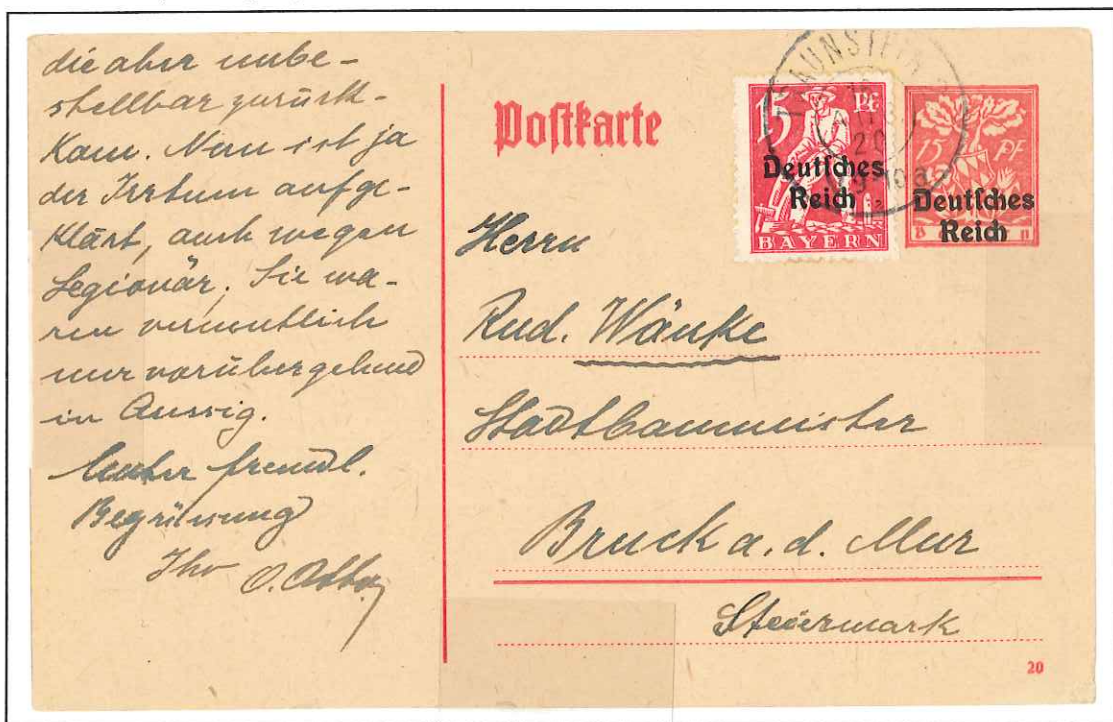 die aber unbe-
stellbar zurück-
kam. Nun ist ja
der Irrtum aufge-
klärt, auch wegen
Legionär, Sie wa-
ren vermutlich
nur vorübergehend
in Aussig.
Unter freundl.
Begrüssung
Ihr O.
Postkarte
15 Pf
Deutsches
Reich
BAYERN
TRAUNSTEIN
20
15 PF
Deutsches
Reich
Herrn
Rud. Wänke
Stadtbaumeister
Bruck a. d. Mur
Steiermark
20